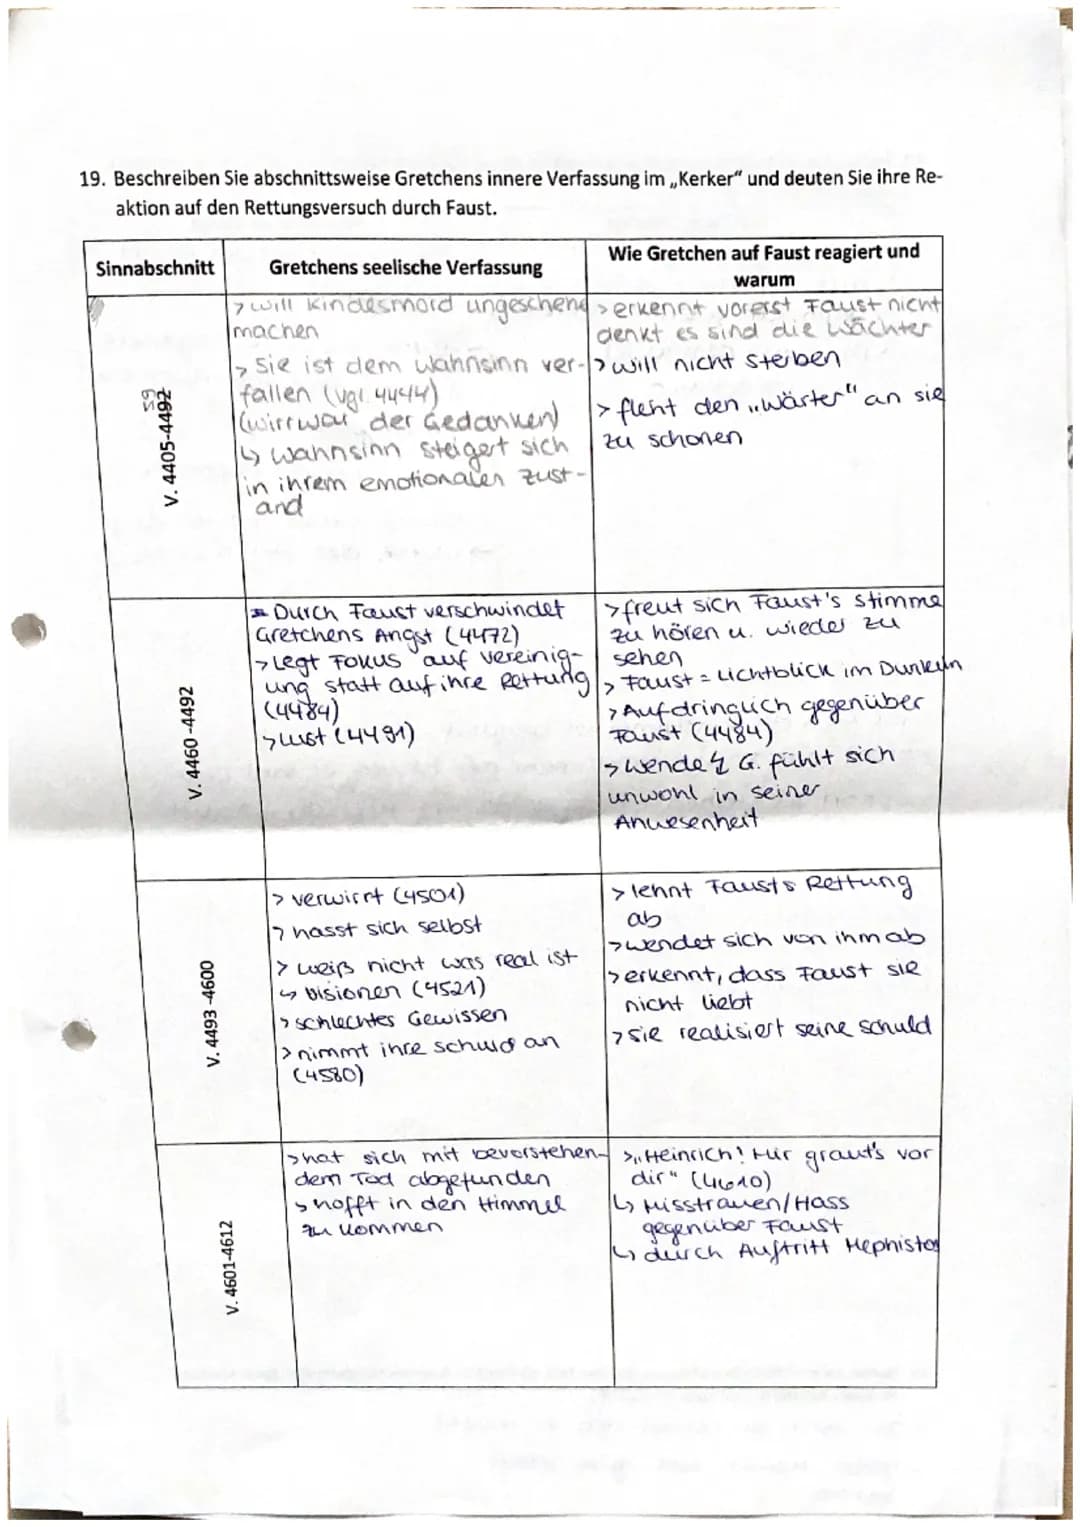 19. Beschreiben Sie abschnittsweise Gretchens innere Verfassung im „Kerker“ und deuten Sie ihre Re-
aktion auf den Rettungsversuch durch Faust.
Sinnabschnitt
Gretchens seelische Verfassung
Wie Gretchen auf Faust reagiert und
warum
V. 4405-4492
59
> will Kindesmord ungeschehen
machen
> Sie ist dem Wahnsinn ver-
fallen (vgl. 4444)
(wirrwar der Gedanken)
↳ Wahnsinn steigert sich
in ihrem emotionalen Zust-
and
> erkennt vorerst Faust nicht
denkt es sind die Wächter
> will nicht sterben
> fleht den „Wärter“ an sie
zu schonen
V. 4460 -4492
Durch Faust verschwindet
Gretchens Angst (4472)
> Legt Fokus auf Vereinig-
ung statt auf ihre Rettung
(4484)
> Lust (4491)
> freut sich Faust's Stimme
zu hören u. wieder zu
sehen
> Faust = Lichtblick im Dunkeln
> Aufdringlich gegenüber
Faust (4484)
> Wende ↯ G. fühlt sich
unwohl in seiner
Anwesenheit
V. 4493 -4600
> verwirrt (4501)
> hasst sich selbst
> weiß nicht was real ist
↳ Visionen (4521)
> schlechtes Gewissen
> nimmt ihre Schuld an
(4580)
> lehnt Fausts Rettung
ab
> wendet sich von ihm ab
> erkennt, dass Faust sie
nicht liebt
> sie realisiert seine Schuld
V. 4601-4612
> hat sich mit bevorstehen-
dem Tod abgefunden
> hofft in den Himmel
zu kommen
> „Heinrich! Mir graut's vor
dir“ (4610)
↳ Misstrauen/Hass
gegenüber Faust
↳ durch Auftritt Mephistos